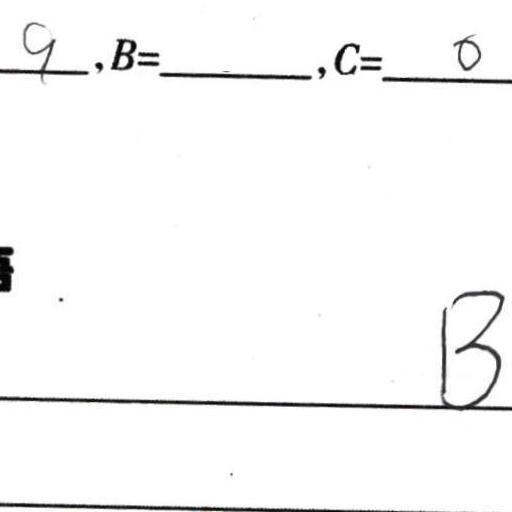 9, B=______, C= 0
B